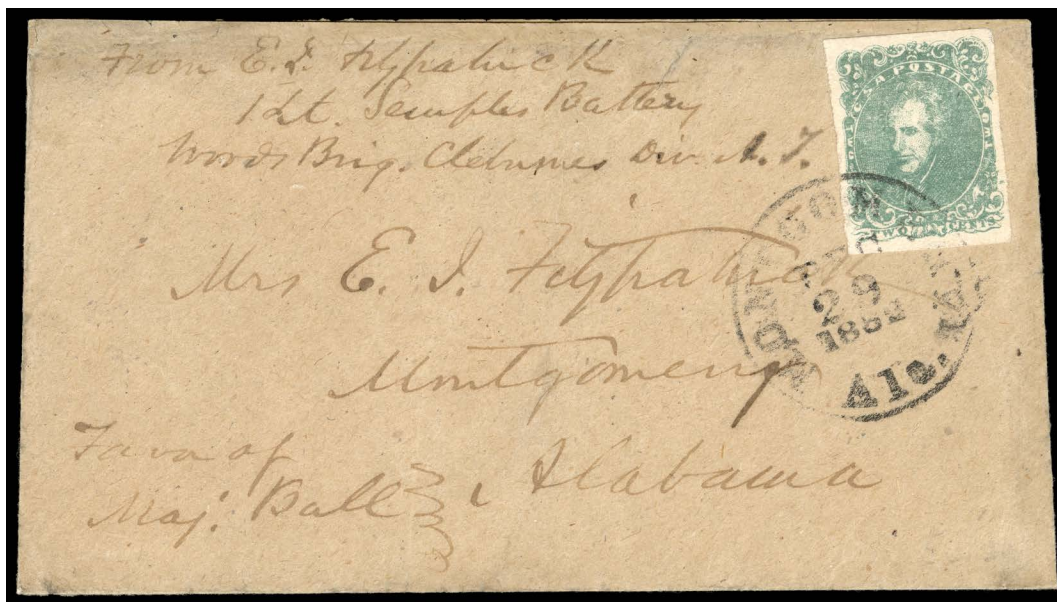 From E. I. Fitzpatrick
1 Lt. Semples Battery
Woods Brig. Cleburnes Div. A. T.
C S A POSTAGE
TWO CENTS
MONTGOMERY
29
1862
Ala.
Mrs E. I. Fitzpatrick
Montgomery
Alabama
Favor of
Maj. Ball